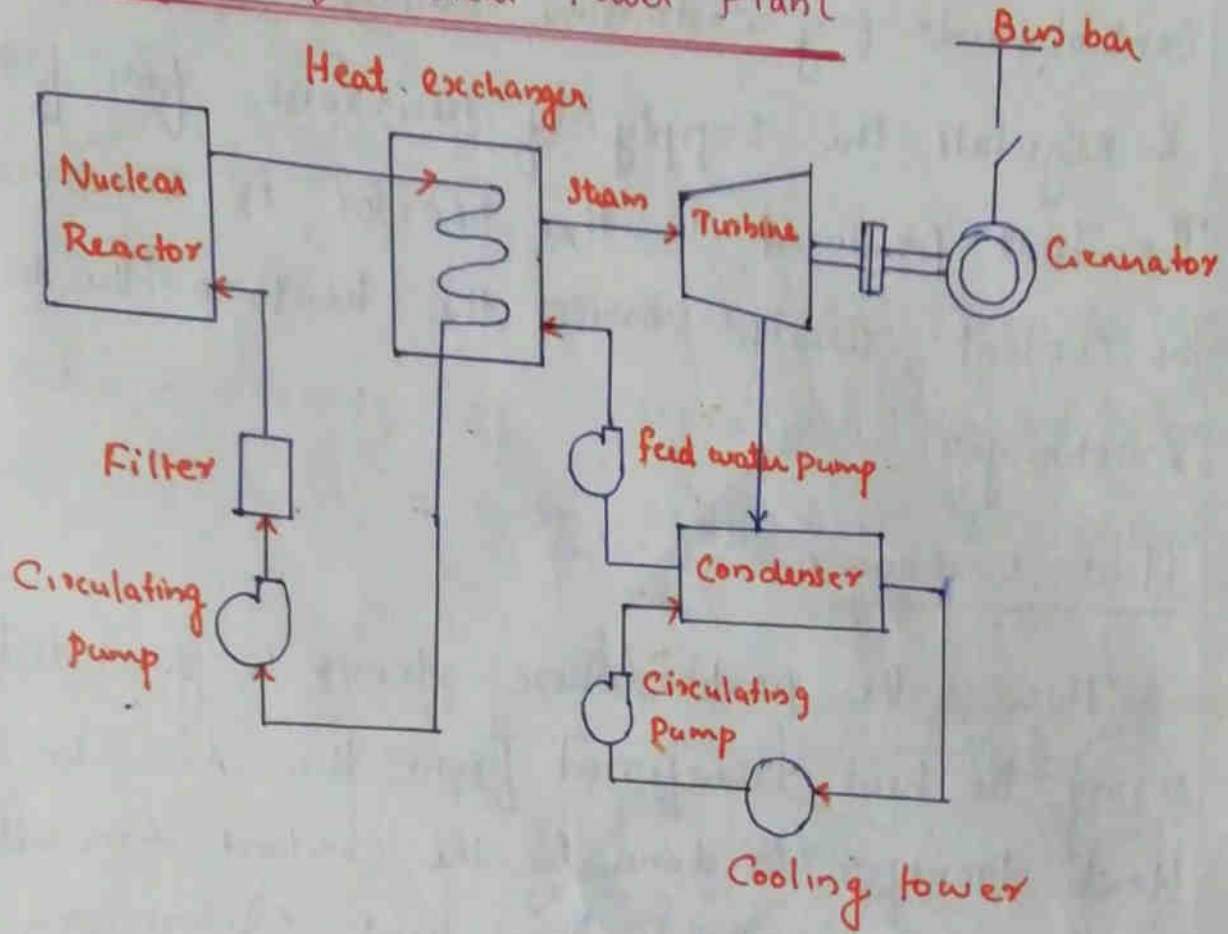 Power Plant
Bus bar
Heat exchanger
Nuclear
Reactor
Steam
Turbine
Generator
Filter
feed water pump
Condenser
Circulating
Pump
Circulating
Pump
Cooling tower